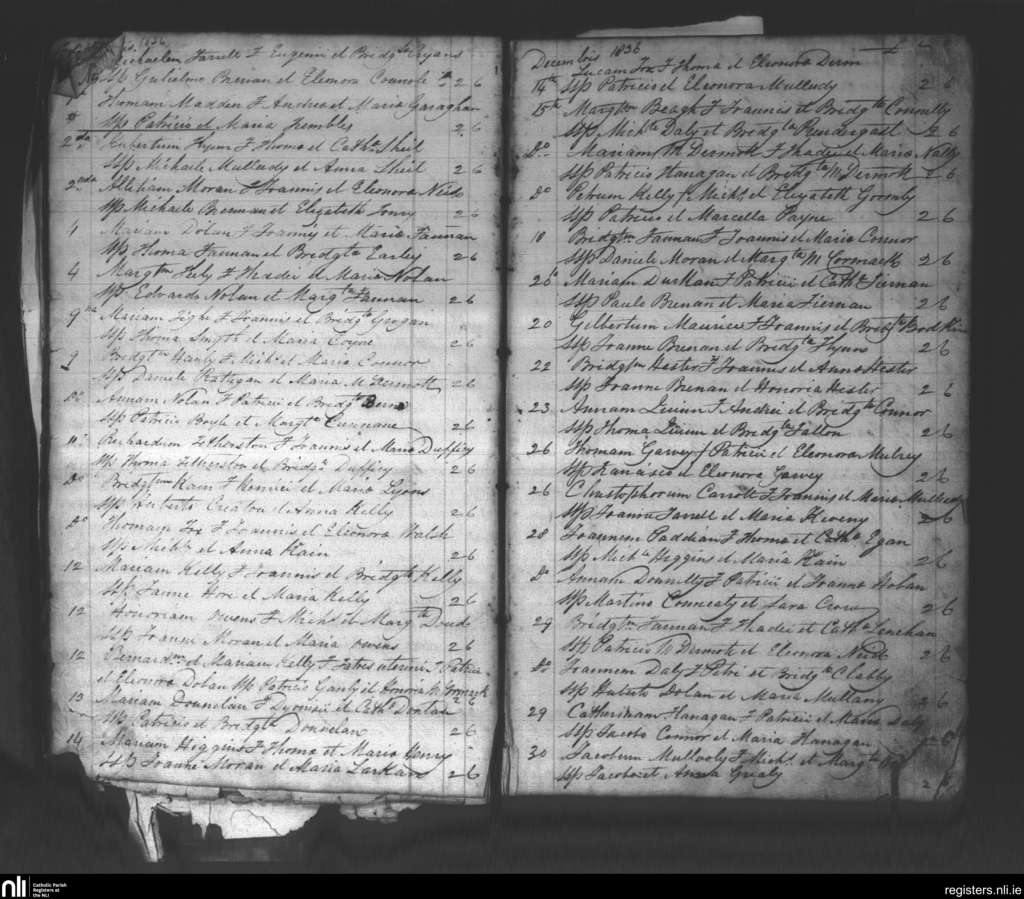 1836
Michaelem Farrell F Eugenii et Bridgtta Ryans
Sp Gulielmo Brenan et Eleonora Connole 2 6
Thomam Madden F Andrea et Maria Garaghan
Sp Patricio et Maria Trembles 2 6
2da Hubertum Flynn F Thoma et Cathn Sheil
Ssp Michaele Mullady et Anna Sheil 2 6
2nda Moran F Joannis et Eleonora
Sp Michaele Brennan et Elizabeth 2 6
4 Mariam Dolan F Joannis et Maria Fannan
Sp Thoma Fannan et Bridgta Earley 2 6
4 Margtm F Thadei et Maria Nolan
Sp Edvardo Nolan et Margta Fannan 2 6
9na Mariam F Joannis et Bridgta Geogan
Ssp Thoma Smyth et Maria Coyne 2 6
9 Bridgtm Hanly F Michls et Maria Connor
Ssp Daniele Rattigan et Maria McDermott 2 6
Do Annam Nolan F Patricii et Bridgta
Ssp Patricio Boyle et Margta 2 6
11 Richardum Fetherston F Joannis et Maria Duffiey
Sp Thoma Fetherston et Bridgta Duffiey 2 6
Do Bridgtm Kain F et Maria Lyons
Sp Huberto et Anna Kelly 2 6
Do Thomam Fox F Joannis et Eleonora Walsh
Sp Michle et Anna Kain 2 6
12 Mariam Kelly F Joannis et Bridgta Kelly
Ssp Hore et Maria Kelly 2 6
12 Honoriam Owens F Michls et Margta Doud
Ssp Joanne Moran et Maria Owens 2 6
12 Bernardm et Mariam Kelly F Patricii
et Eleonora Dolan Sp Patricio Ganly et Honoria McCormick 2 6
13 Mariam Donnelan F Dyonisii et Cathn Donlan
Sp Patricio et Bridgta Donnelan 2 6
14 Mariam Higgins F Thoma et Maria Henry
Ssp Joanne Moran et Maria Larkan 2 6
Decembris 1836
Lucam Fox F Thoma et Eleonora
14th Ssp Patricio et Eleonora Mullady 2 6
15th Margtm Beagh F Joannis et Bridgta Connelly
Ssp Michle Daly et Bridgta Prendergast 2 6
Do Mariam McDermott F Thadei et Maria Nally
Ssp Patricio Hanagan et Bridgta McDermott 2 6
Do Petrum Kelly F Michls et Elizabeth
Ssp Patricio et Marcella Payne 2 6
18 Bridgtm Fannan F Joannis et Maria Connor
Ssp Daniele Moran et Margta McCormack 2 6
20 Mariam F Patricii et Cathn Tiernan
Ssp Paulo Brenan et Maria Tiernan 2 6
20 Gilbertum Maurice F Joannis et Bridgta Bodkin
Ssp Joanne Brenan et Bridgta Flynn 2 6
22 Bridgtm Hester F Joannis et Anna Hester
Ssp Joanne Brenan et Honoria Hester 2 6
23 Annam Quinn F Andrei et Bridgta Connor
Ssp Thoma Quinn et Bridgta Fallon 2 6
26 Thomam Garvey F Patricii et Eleonora Mulrey
Ssp Francisco et Eleonora Garvey 2 6
26 Christophorum Carroll F Joannis et Maria Mullady
Ssp Joanne Farrell et Maria Kiveny 2 6
28 Joannem Paddian F Thoma et Catha Egan
Sp Michle Higgins et Maria Kain 2 6
Do Annam Donnelly F Patricii et Joanna Hoban
Ssp Martino Conneaty et Sara Crow 2 6
29 Bridgtm Fannan F Thadei et Catha Lenehan
Ssp Patricio McDermott et Eleonora 2 6
Do Joannem Daly F Petri et Bridgta Clabby
Ssp Huberto Dolan et Maria Mullany 2 6
29 Catherinam Flanagan F Patricii et Maria Daly
Ssp Jacobo Connor et Maria Flanagan 2 6
30 Jacobum Mullooly F Michls et Margta
Ssp Jacobo et Anna Grealy 2 6
nli Catholic Parish
Registers at
the NLI
registers.nli.ie